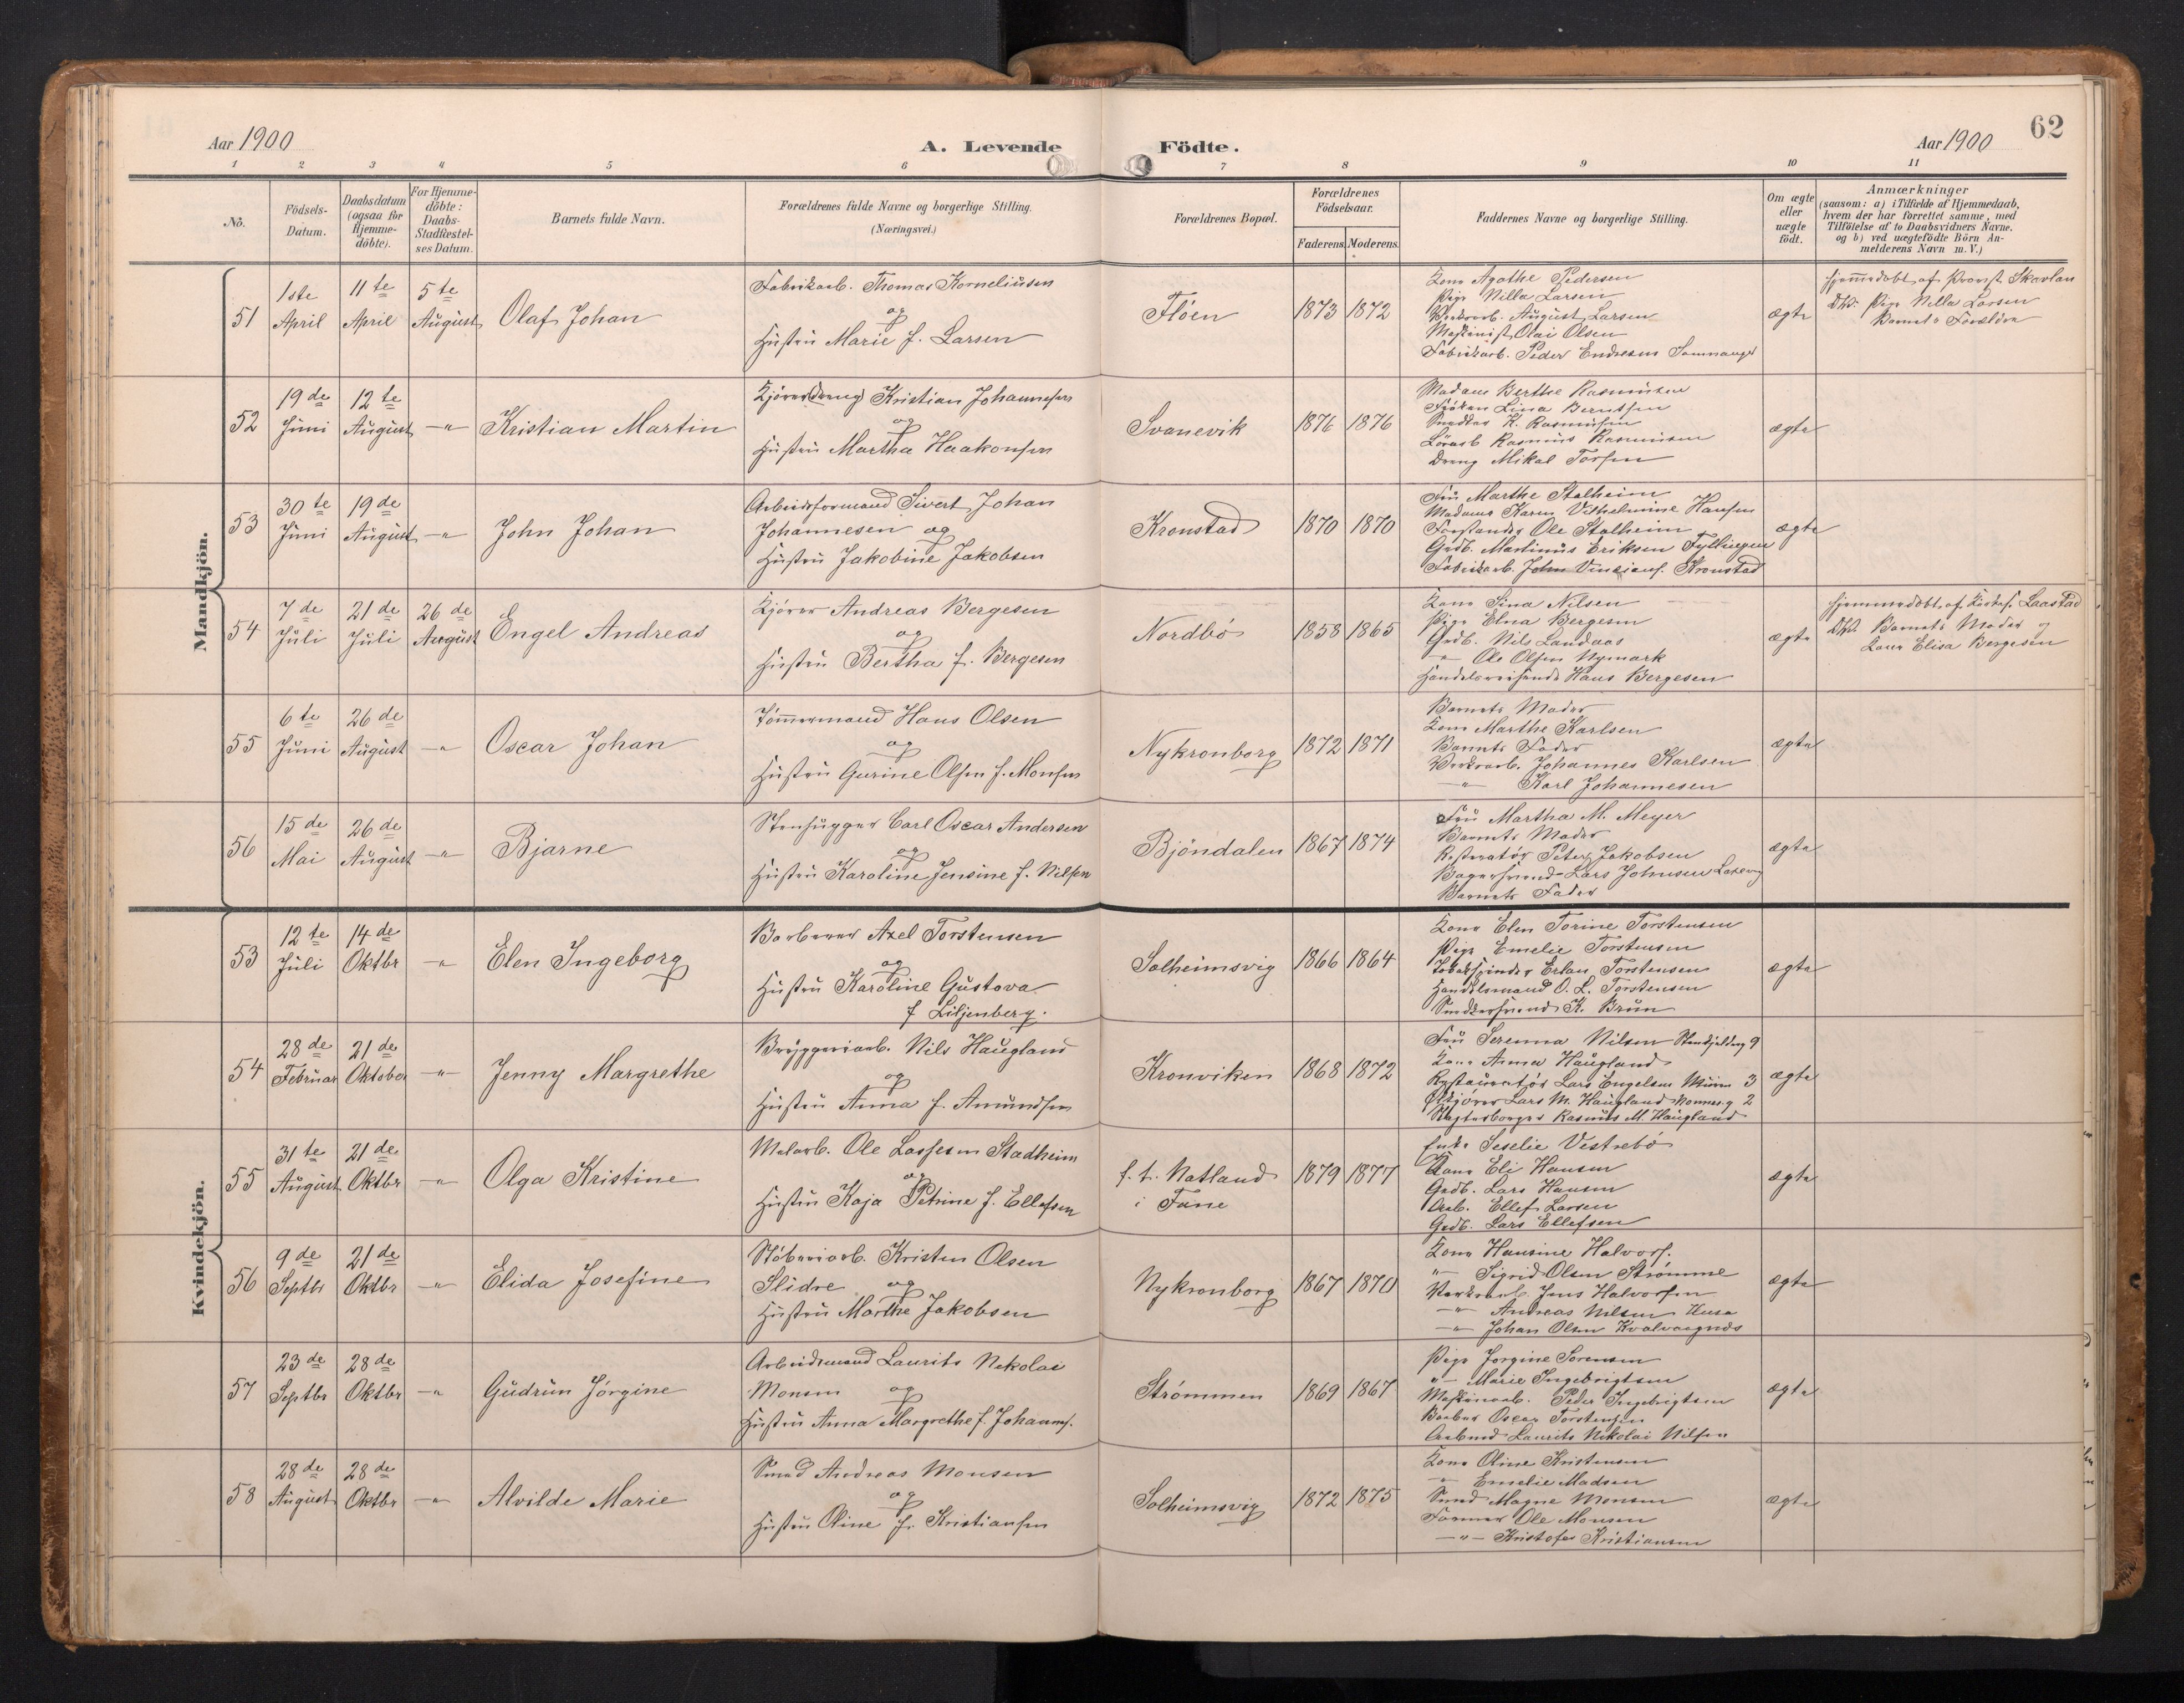 62
Aar 1900
A. Levende Födte.
Aar 1900
1 2 3 4 5 6 7 8 9 10 11
No.
Födsels-
Datum.
Daabsdatum
(ogsaa for
Hjemme-
döbte).
For Hjemme-
döbte:
Daabs-
Stadfæstel-
ses Datum.
Barnets fulde Navn.
Forældrenes fulde Navne og borgerlige Stilling.
(Næringsvei.)
Forældrenes Bopæl.
Forældrenes
Födselsaar.
Faderens. Moderens.
Faddernes Navne og borgerlige Stilling.
Om ægte
eller
uægte
födt.
Anmærkninger
(saasom: a) i Tilfælde af Hjemmedaab,
hvem der har forrettet samme, med
Tilföielse af to Daabsvidners Navne.
og b) ved uægtefödte Börn An-
melderens Navn m. V.)
Mandkjön.
51
1ste April
11te April
5te August
Olaf Johan
Fabrikarb. Thomas Korneliusen
og
Hustru Marie f. Larsen
Flöen
1873 1872
Kone Agathe Pedersen
Pige Nilla Larsen
August Larsen
Maskinist Olai Olsen
Fabrikarb. Peder Endresen Samnanger
ægte
Hjemmedøbt af Provst Skavlan
Dbv. Pige Nilla Larsen
Barnets Forældre
52
19de Juni
12te August
—"—
Kristian Martin
Kjører(dreng) Kristian Johannesen
og
Hustru Martha Haakonsen
Svanevik
1876 1876
Madam Berthe Rasmussen
Frøken Lina Berntsen
K. Rasmussen
Rasmus Rasmussen
Dreng Mikal Torsen
ægte
53
30te Juni
19de August
—"—
John Johan
Arbeidsformand Sivert Johan
Johannesen og
Hustru Jakobine Jakobsen
Kronstad
1870 1870
Fru Marthe Stalheim
Madame Karen Vilhelmine Hansen
Forstander Ole Stalheim
Grdb. Martinus Eriksen
Fabrikarb. John Kronstad
ægte
54
7de Juli
21de Juli
26de August
Engel Andreas
Kjører Andreas Bergesen
og
Hustru Bertha f. Bergesen
Nordbö
1858 1865
Kone Sina Nilsen
Pige Elna Bergesen
Grdb. Nils Landaas
—"— Ole Olsen Nymark
Handelsreisende Hans Bergesen
ægte
Hjemmedøbt af Laastad
Dbv. Barnets Moder og
Kone Elisa Bergesen
55
6te Juni
26de August
—"—
Oscar Johan
Tømmermand Hans Olsen
og
Hustru Gurine Olsen f. Monsen
Nykronborg
1872 1871
Barnets Moder
Kone Marthe Karlsen
Barnets Fader
Verksarb. Johannes Karlsen
—"— Karl Johannesen
ægte
56
15de Mai
26de August
—"—
Bjarne
Stenhugger Carl Oscar Andersen
og
Hustru Karoline Jensine f. Nilsen
Bjöndalen
1867 1874
Fru Martha M. Meyer
Barnets Moder
Peter Jakobsen
Bagersvend Lars Johnsen Laxevaag
Barnets Fader
ægte
Kvindekjön.
53
12te Juli
14de Oktbr
—"—
Elen Ingeborg
Barberer Axel Torstensen
og
Hustru Karoline Gustova
f Liljenberg.
Solheimsvig
1866 1864
Kone Elen Torine Torstensen
Pige Emelie Torstensen
Tobakspinder Erlan Torstensen
Handelsmand O. L. Torstensen
Snedkersvend K. Brun
ægte
54
28de Februar
21de Oktober
—"—
Jenny Margrethe
Bryggeriarb. Nils Haugland
og
Hustru Anna f. Amundsen
Kronviken
1868 1872
Fru Serenna Nilsen 9
Kone Anna Haugland
Restauratør Lars Engelsen Muren 3
Ølkjører Lars M. Haugland 2
Rasmus M. Haugland
ægte
55
31te August
21de Oktbr
—"—
Olga Kristine
Malarb. Ole Lassesen Stadheim
og
Hustru Kaja Petrine f. Ellefsen
f. t. Natland
i Fane
1879 1877
Enke Seselie Vestrebö
Kone Eli Hansen
Grdb. Lars Hansen
Arb. Ellef Larsen
Grdb. Lars Ellefsen
ægte
56
9de Septbr
21de Oktbr
—"—
Elida Josefine
Støberiarb. Kristen Olsen
Slidre og
Hustru Marthe Jakobsen
Nykronborg
1867 1870
Kone Hansine Halvors.
—"— Sigrid Olsen Strömme
Verksarb. Jens Halvorsen
—"— Andreas Nilsen Husa
—"— Johan Olsen Kvalvaagnes
ægte
57
23de Septbr
28de Oktbr
—"—
Gudrun Jörgine
Arbeidsmand Laurits Nekolai
Monsen og
Hustru Anna Margrethe f. Johannes.
Strömmen
1869 1867
Pige Jorgine Sorensen
"— Marie Ingebrigtsen
Maskinarb. Peder Ingebrigtsen
Barber Oscar Torstensen
Arbmd Laurits Nekolai Nilsen
ægte
58
28de August
28de Oktbr
—"—
Alvilde Marie
Smed Andreas Monsen
og
Hustru Oline f. Kristiansen
Solheimsvig
1872 1875
Kone Oline Kristensen
—"— Emelie Madsen
Smed Magne Monsen
Former Ole Monsen
—"— Kristofer Kristiansen
ægte